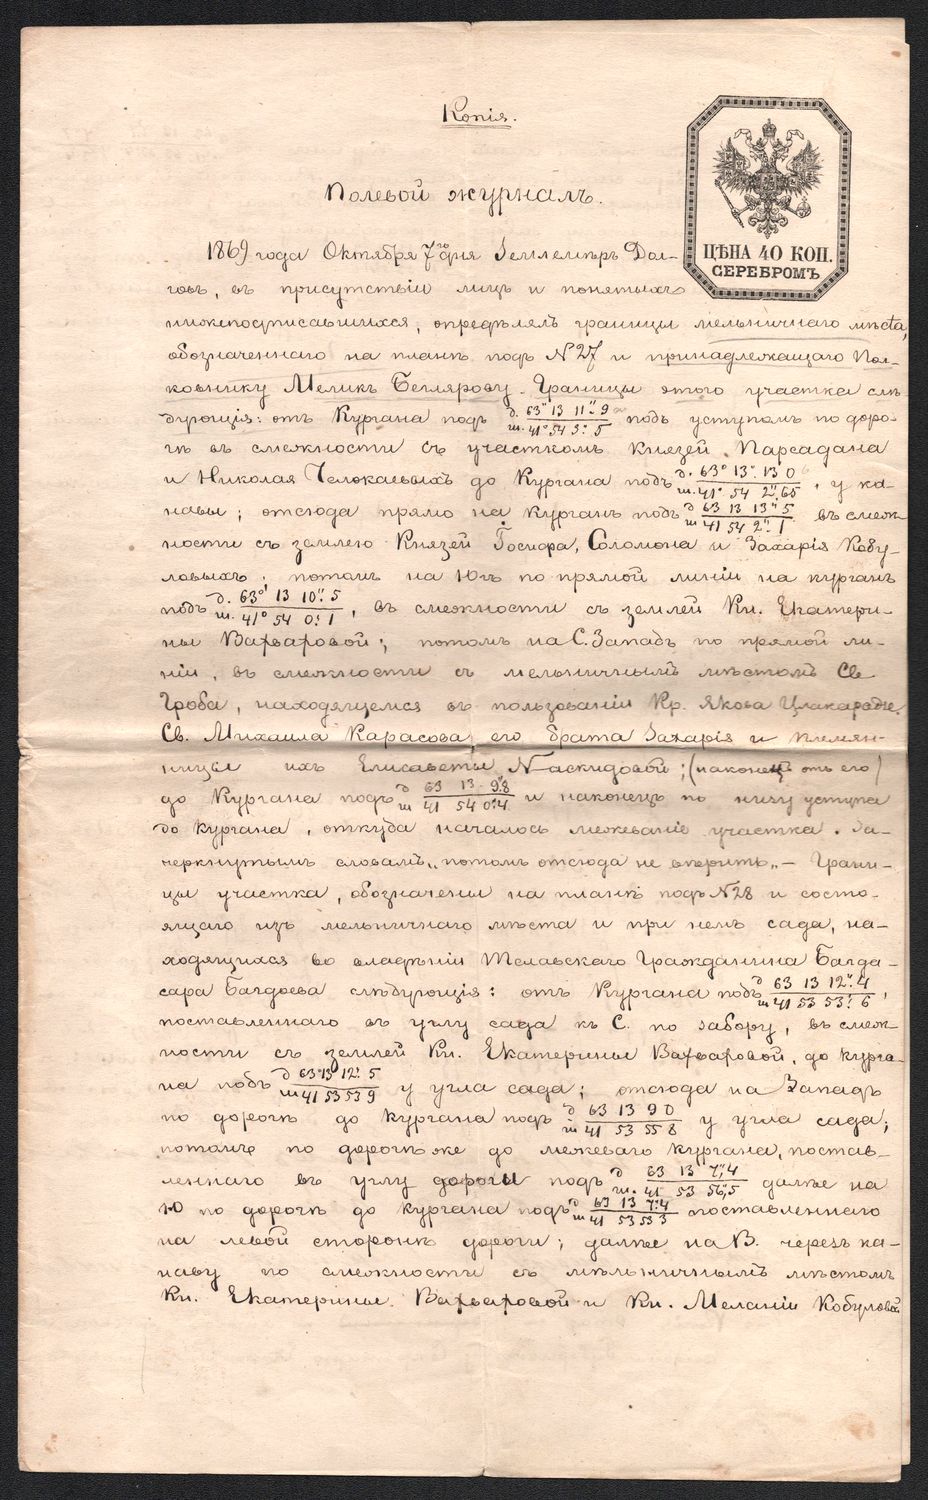 Копія.
ЦѢНА 40 КОП.
СЕРЕБРОМЪ
Полевой журналъ.
1869 года Октября 7го дня Землемѣръ Дол-
говъ, въ присутствіи лицъ и понятыхъ
нижеподписавшихся, опредѣлялъ границы мельничнаго мѣста,
обозначеннаго на планѣ подъ №27 и принадлежащаго Пол-
ковнику Меликъ Беглярову. Границы этого участка слѣ
дующія: отъ Кургана подъ д. 63° 13 11". 9 / ш. 41° 54 3". 5 подъ уступомъ по доро-
гѣ въ смежности съ участкомъ Князей Парсадана
и Николая Челокаевыхъ до Кургана подъ д. 63° 13" 13 0 / ш. 41° 54 2". 65, у ка-
навы; отсюда прямо на курганъ подъ д 63 13 13". 5 / ш 41 54 2". 1 въ смеж-
ности съ землею Князей Іосифа, Соломона и Захарія Кобу-
ловыхъ; потомъ на Югъ по прямой линіи на курганъ
подъ д. 63° 13 10". 5 / ш. 41° 54 0". 1, въ смежности съ землей Кн. Екатери-
ны Вахваховой; потомъ на С. Западъ по прямой ли-
ніи, въ смежности съ мельничнымъ мѣстомъ Св
Гроба, находящемся въ пользованіи Кр. Якова
Св. Михаила Карасова, его брата Захарія и племян-
ницы ихъ Елисаветы Наскидовой; (наконецъ отъ его)
до Кургана подъ д 63 13 9".8 / ш 41 54 0".4 и наконецъ по низу уступа
до кургана, откуда началось межеваніе участка. За-
черкнутымъ словамъ „потомъ отсюда не вѣрить„ — Грани-
цы участка, обозначены на планѣ подъ №28 и состо-
ящаго изъ мельничнаго мѣста и при немъ сада, на-
ходящихся во владѣніи Телавскаго Гражданина Багда-
сара Багдоева слѣдующія: отъ Кургана подъ д 63 13 12". 4 / ш 41 53 53". 6,
поставленнаго въ углу сада къ С. по забору, въ смеж-
ности съ землей Кн. Екатерины Вахваховой, до курга-
на подъ д 63 13 12". 5 / ш 41 53 53 9 у угла сада; отсюда на Западъ
по дорогѣ до кургана подъ д 63 13 9 0 / ш 41 53 55 8 у угла сада;
потомъ по дорогѣ же до межеваго кургана, постав-
леннаго въ углу дороги подъ д 63 13 7", 4 / ш. 41 53 56", 5 далѣе на
Ю по дорогѣ до кургана подъ д 63 13 7".4 / ш 41 53 53 3 поставленнаго
на левой сторонѣ дороги; далѣе на В. черезъ ка-
наву по смежности съ мѣльничнымъ мѣстомъ
Кн. Екатерины Вахваховой и Кн. Меланіи Кобуловой